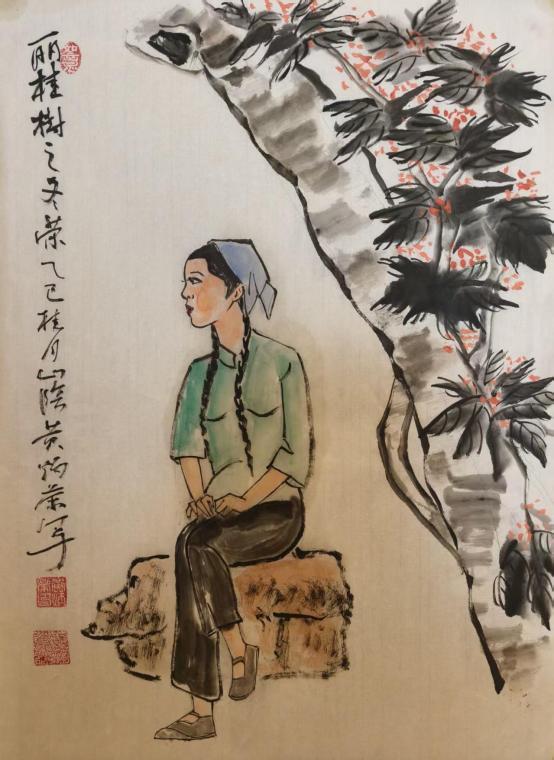 丽桂树之冬荣乙巳桂月山阴黄炳荣写